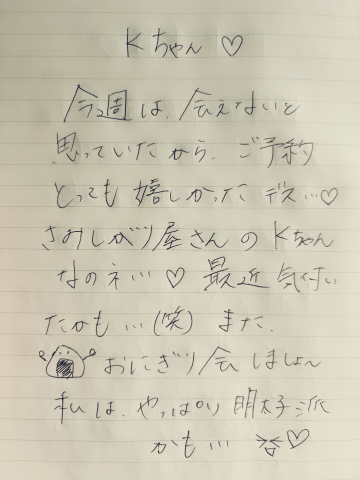 Kちゃん ♡
今週は、会えないと
思っていたから、ご予約
とっても嬉しかったデス…♡
さみしがり屋さんのKちゃん
なのネ…♡ 最近気付い
たかも…(笑) また、
おにぎり会しましょ〜
私は、やっぱり明太子派
かも… ♡